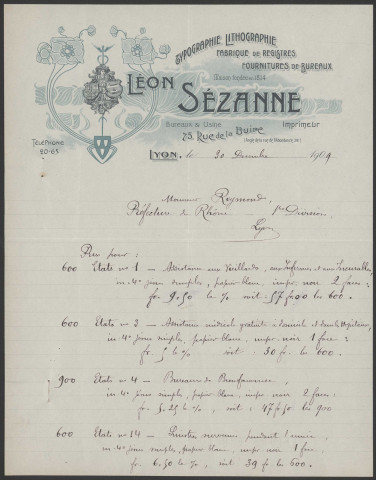 TYPOGRAPHIE LITHOGRAPHIE
FABRIQUE DE REGISTRES
FOURNITURES DE BUREAUX
Maison fondée en 1854
LÉON SÉZANNE
Bureaux & Usine Imprimeur
75, Rue de la Buire
TÉLÉPHONE
20-63
LYON, le 30 Décembre 1904
Monsieur Raymond,
Préfecture du Rhône 1re Division
Lyon
Prix pour :
600 Etats no 1 — Assistance aux Vieillards, aux Infirmes et aux Incurables,
in-4o jésus simples, papier blanc, impr. noir 2 faces :
fr. 9,50 le % soit 57 fr 00 les 600.
600 Etats no 3 — Assistance médicale gratuite à domicile et dans les hôpitaux,
in-4o jésus simples, papier blanc, impr. noir 1 face :
fr. 5 le % soit : 30 fr. les 600.
900 Etats no 4 — Bureaux de Bienfaisance,
in-4o jésus simples, papier blanc, impr. noir 2 faces :
fr. 5.25 le %, soit : 47 fr 50 les 900
600 Etats no 14 — Sinistres survenus pendant l'année,
in-4o jésus simples, papier blanc, impr. noir 1 face
fr. 6.50 le %, soit : 39 fr les 600.